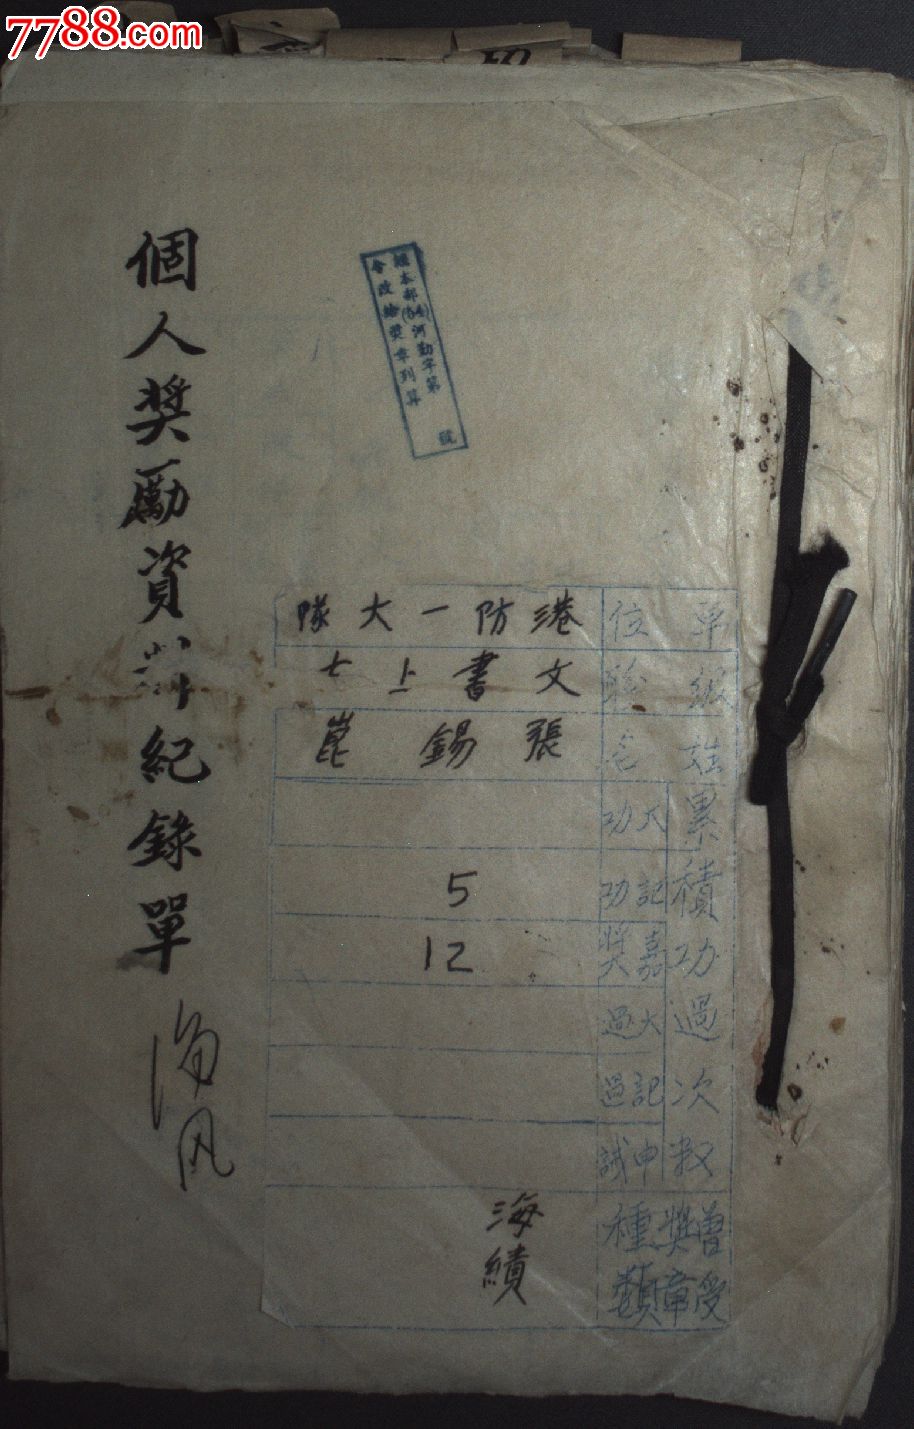 7788.com
個人獎勵資料紀錄單
經本部(54)河勤字第 號
令改給獎章列算
單位 港防一大隊
級職 文書上士
姓名 張錫崑
累積功過次數
大功
記功 5
嘉獎 12
大過
記過
申誡
曾受獎章種類 海績